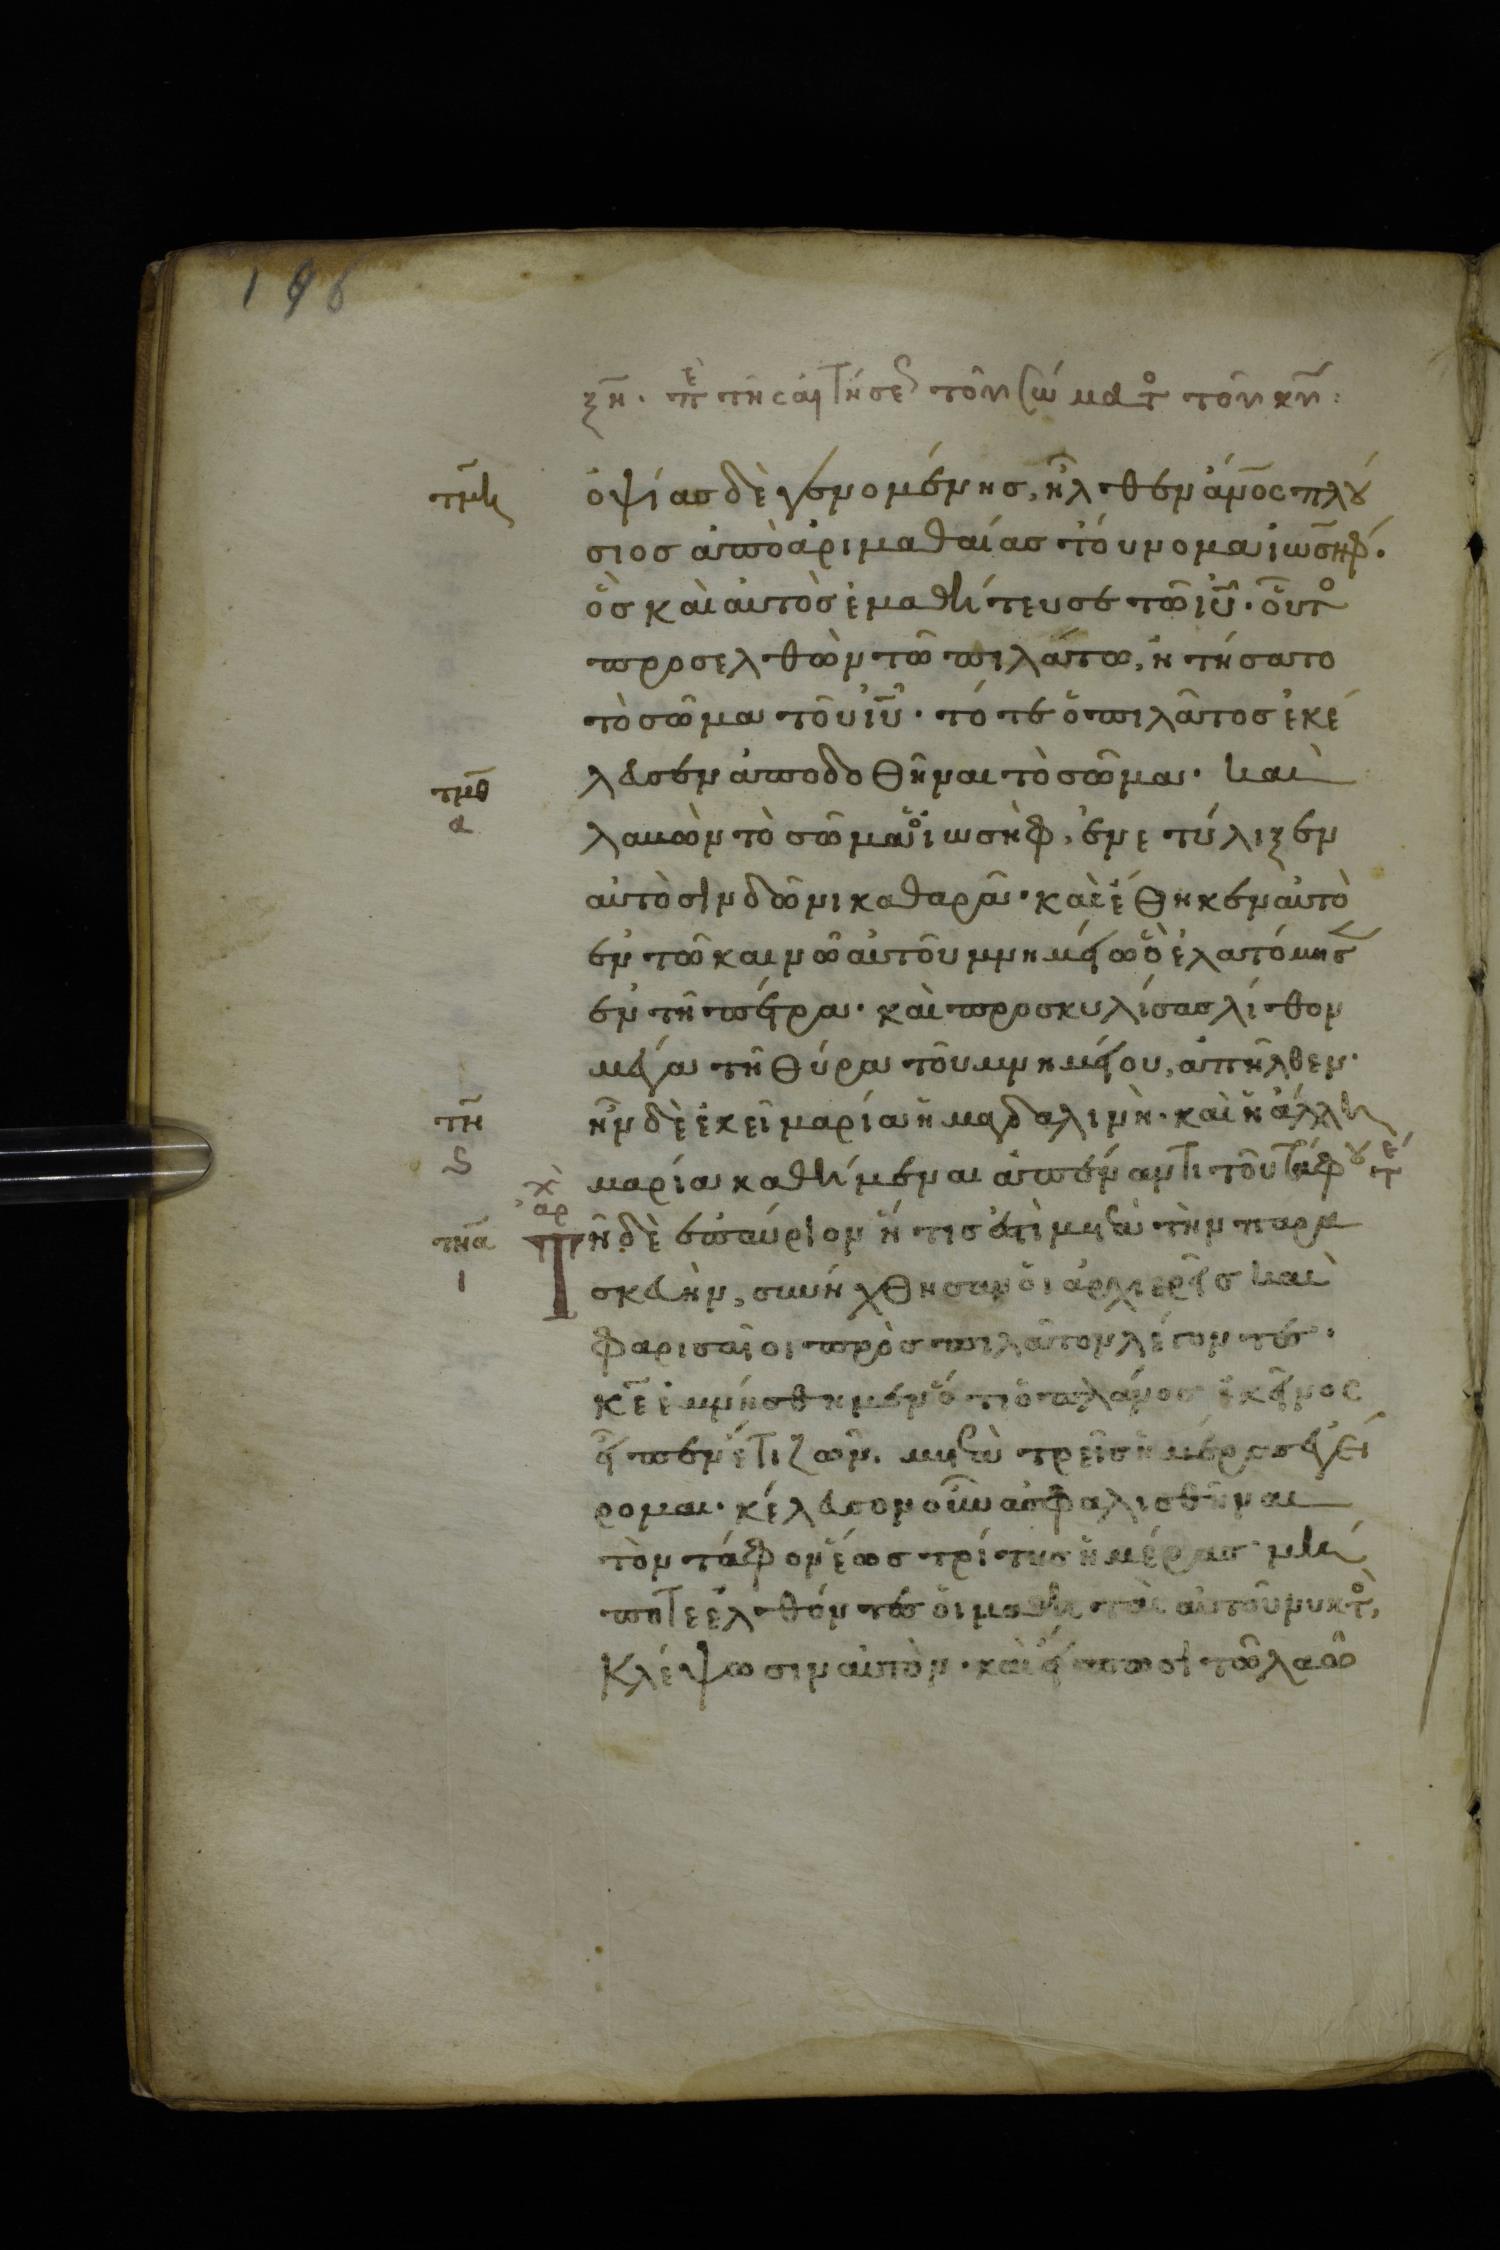 196
ξη. πε τῆς αἰτήσε τοῦ σώματο τοῦ κυ:
τμη ὀψίας δὲ γενομένης, ἦλθεν ἄνος πλού
σιος ἀπὸ ἀριμαθαίας τοὔνομα ἰωσήφ.
ὃς καὶ αὐτὸς ἐμαθήτευσε τῶ ιυ. οὗτο
προσελθὼν τῶ πιλάτω, ἠτήσατο
τὸ σῶμα τοῦ ιυ. τότε ὁ πιλᾶτος ἐκέ
τμθ λευσεν ἀποδοθῆναι τὸ σῶμα. καὶ
α λαβὼν τὸ σῶμα ὁ ἰωσὴφ, ἐνετύλιξεν
αὐτὸ σινδῶνι καθαρᾶ. καὶ ἔθηκεν αὐτὸ
ἐν τῶ καινῶ αὐτοῦ μνημείω ὃ ἐλατόμησ
ἐν τῆ πέτρα. καὶ προσκυλίσας λίθον
μέγα τῆ θύρα τοῦ μνημείου, ἀπῆλθεν.
τν ἦν δὲ ἐκεῖ μαρία ἡ μαγδαλινὴ. καὶ ἡ ἄλλη
ς μαρία καθήμεναι ἀπέναντι τοῦ τάφου τε
αρχ
τνα Τῆ δὲ ἐπαύριον ἥτις ἐστὶ μετὰ τὴν παρα
ι σκευὴν, συνήχθησαν οἱ ἀρχιερεῖς καὶ
φαρισαῖοι πρὸς πιλᾶτον λέγοντες.
κε ἐμνήσθημεν ὅτι ὁ πλάνος ἐκεῖνος
εἶπεν ἔτι ζῶν. μετὰ τρεῖς ἡμέρας ἐγεί
ρομαι. κέλευσον οὖν ἀσφαλισθῆναι
τὸν τάφον ἕως τρίτης ἡμέρας. μή
ποτε ἐλθόντες οἱ μαθηταὶ αὐτοῦ νυκτὸ,
κλέψωσιν αὐτὸν. καὶ εἴπωσι τῶ λαῶ